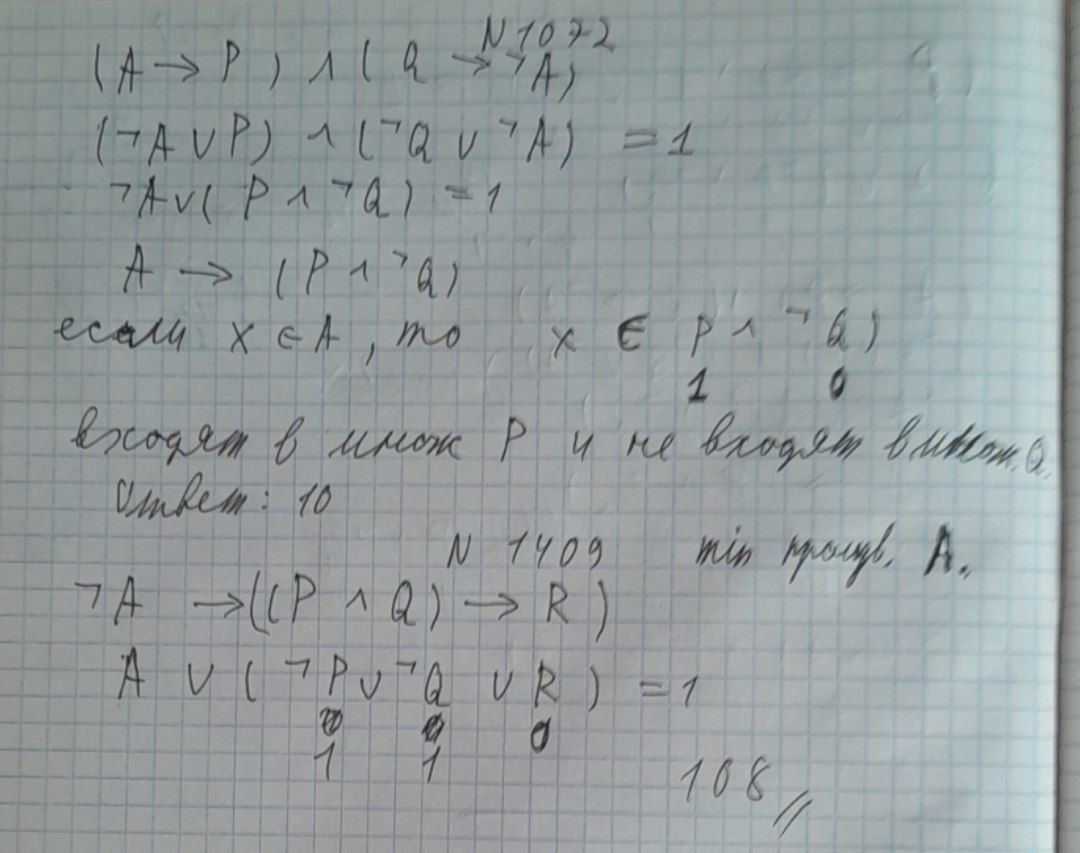 N 1072
(A → P) ∧ (Q → ¬A)
(¬A ∨ P) ∧ (¬Q ∨ ¬A) = 1
¬A ∨ (P ∧ ¬Q) = 1
A → (P ∧ ¬Q)
если x ∈ A, то x ∈ P ∧ ¬Q)
1 0
входят в множ P и не входят в множ. Q.
Ответ: 10
N 1409 min произв. A.
¬A → ((P ∧ Q) → R)
A ∨ (¬P ∨ ¬Q ∨ R) = 1
0
1 1
108